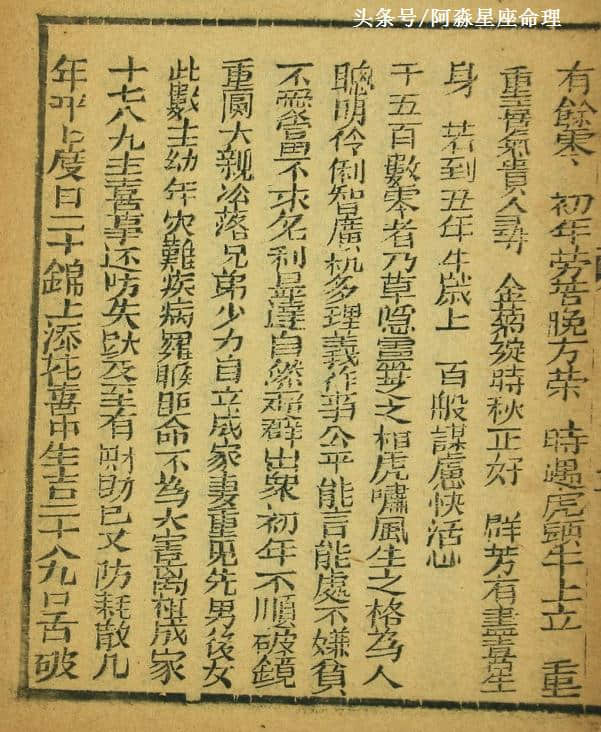 头条号/阿淼星座命理
有餘零 初年劳苦晚方荣 時遇虎頭牛上立 重
重喜氣貴人尋 金菊綻時秋正好 群芳有盡喜星
身 若到丑年牛歲上 百般謀慮快活心
千五百數零者乃草隱靈芝之相虎嘯風生之格為人
聰明伶俐智廣机多理義作事公平能言能處不嫌貧
不愛富不求名利显達自然超群出衆初年不順破鏡
重圓六親冷落兄弟少力自立成家妻重見先男後女
此數主幼年灾難疾病羅睺照命不為大害离祖成家
十七八九主喜事还防失欤及至有財助已又防耗散几
年平上度日二十錦上添花喜中生吉二十八九口舌破